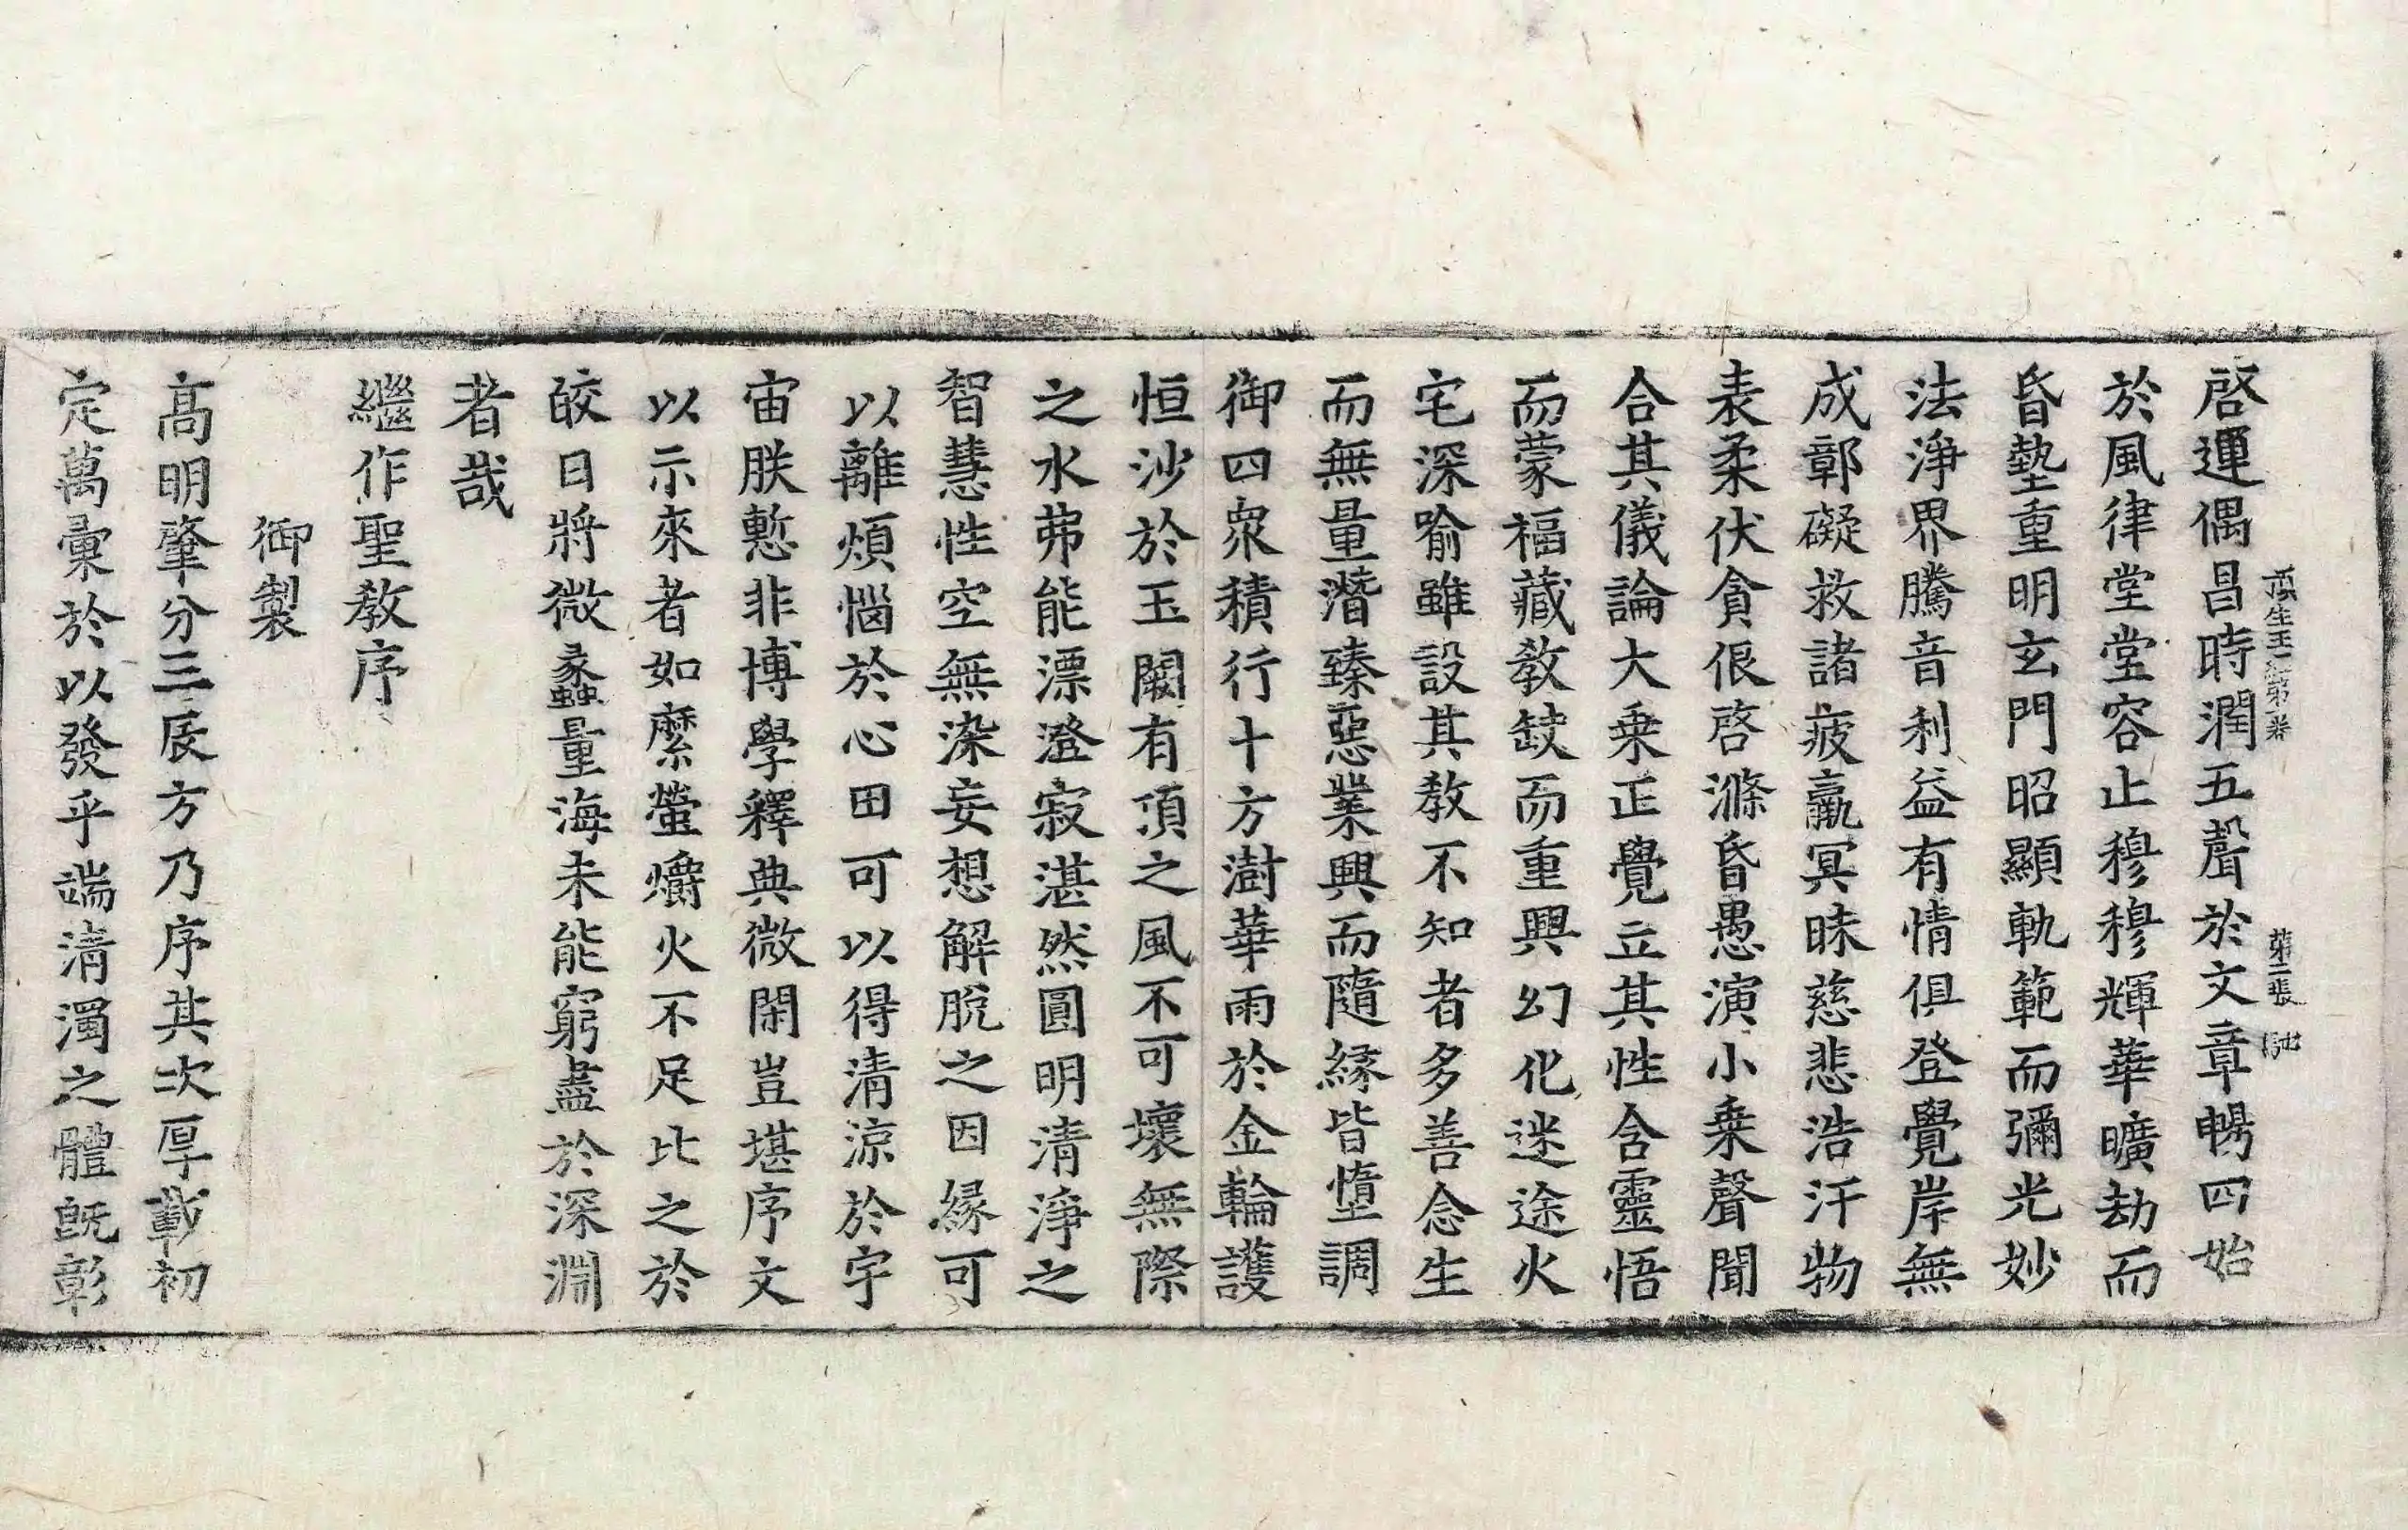 頂生王經第一卷 第二張 馳
啓運偶昌時潤五聲於文章暢四始
於風律堂堂容止穆穆輝華曠劫而
昏墊重明玄門昭顯軌範而彌光妙
法淨界騰音利益有情俱登覺岸無
成鄣礙救諸疲羸冥昧慈悲浩汗物
表柔伏貪佷啓滌昏愚演小乗聲聞
合其儀論大乗正覺立其性含靈悟
而蒙福藏教缺而重興幻化迷途火
宅深喻雖設其教不知者多善念生
而無量潛臻惡業興而隨緣皆墮調
御四衆積行十方澍華雨於金輪護
恒沙於玉闕有頂之風不可壞無際
之水弗能漂澄寂湛然圓明清淨之
智慧性空無染妄想解脫之因緣可
以離煩惱於心田可以得清涼於宇
宙朕慙非博學釋典微閑豈堪序文
以示來者如縻螢爝火不足比之於
皎日將微蠡量海未能窮盡於深淵
者哉
繼作聖教序
御製
髙明肇分三辰方乃序其次厚載初
定萬彙於以發乎端清濁之體旣彰